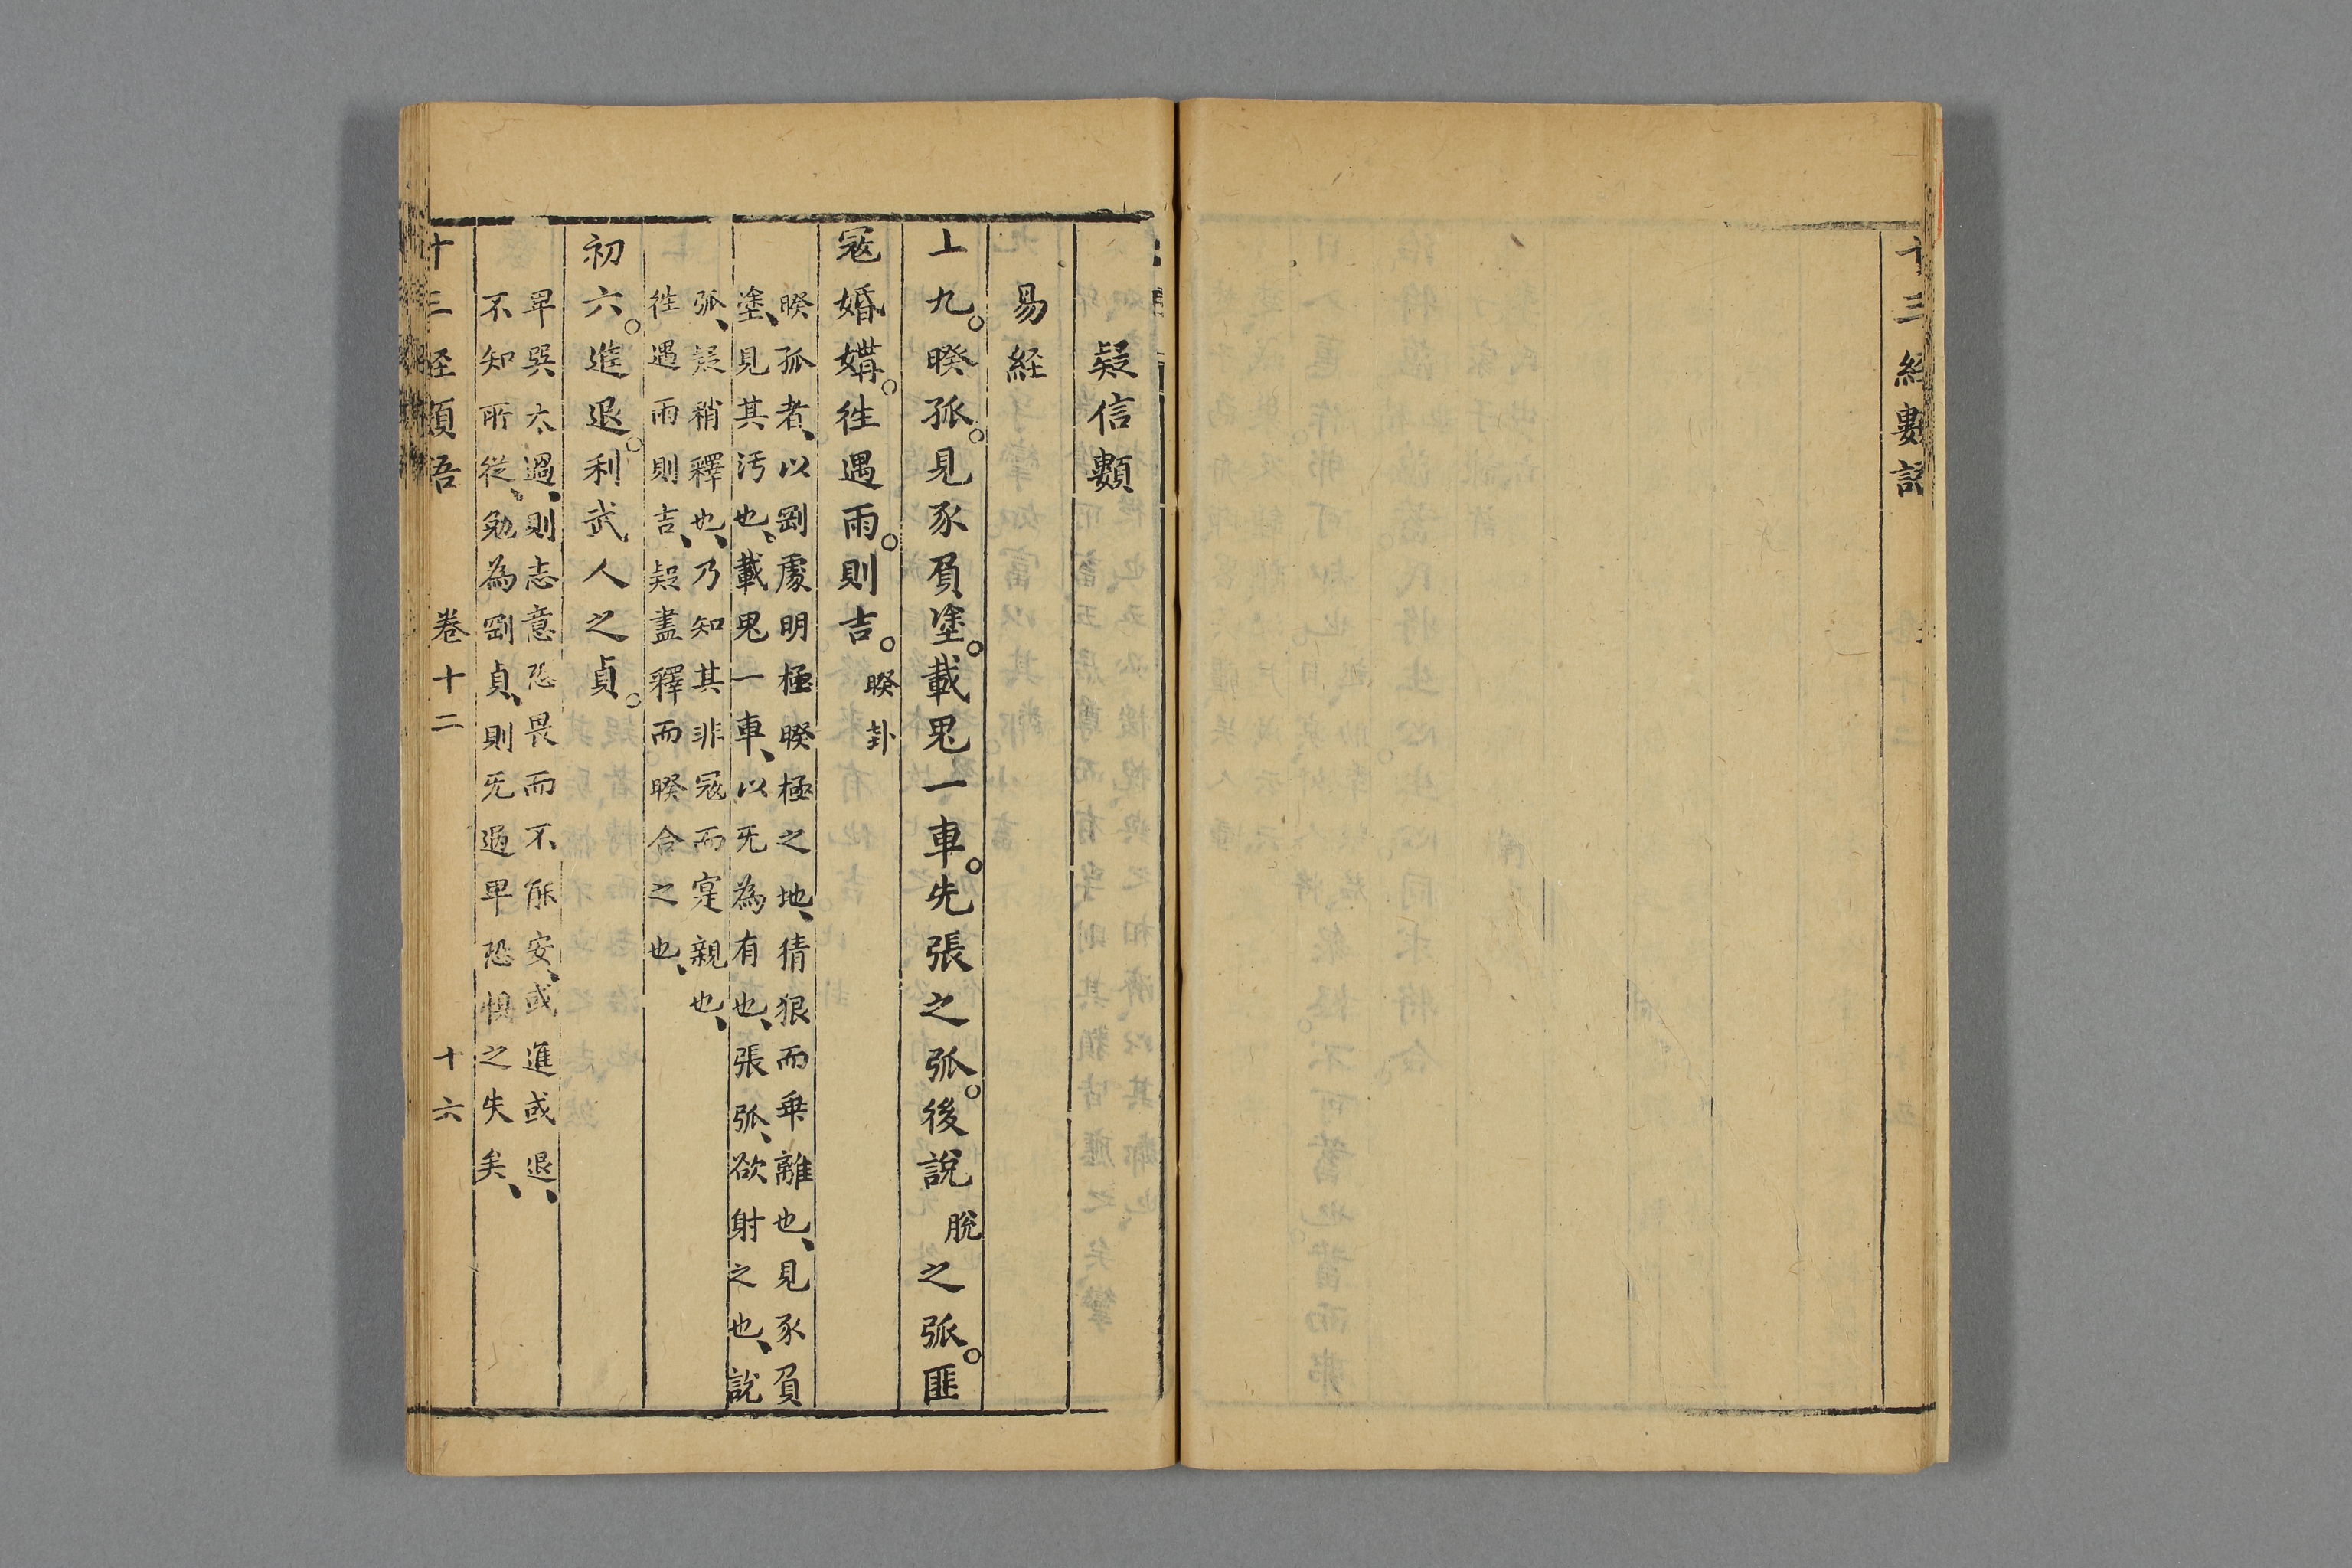 十三經類語
疑信類
易経
上九。睽孤。見豕負塗。載鬼一車。先張之弧。後說脫之弧。匪
寇婚媾。徃遇雨。則吉。睽卦
睽孤者、以剛處明極睽極之地、猜狠而乗離也、見豕負
塗、見其汚也、載鬼一車、以旡為有也、張弧、欲射之也、說
弧、疑稍釋也、乃知其非寇而寔親也、
徃遇雨則吉、疑盡釋而睽合之也、
初六。進退。利武人之貞。
卑巽太過、則志意恐畏而不能安、或進或退、
不知所從、勉為剛貞、則旡過卑恐惧之失矣、
十三経類語 卷十二 十六